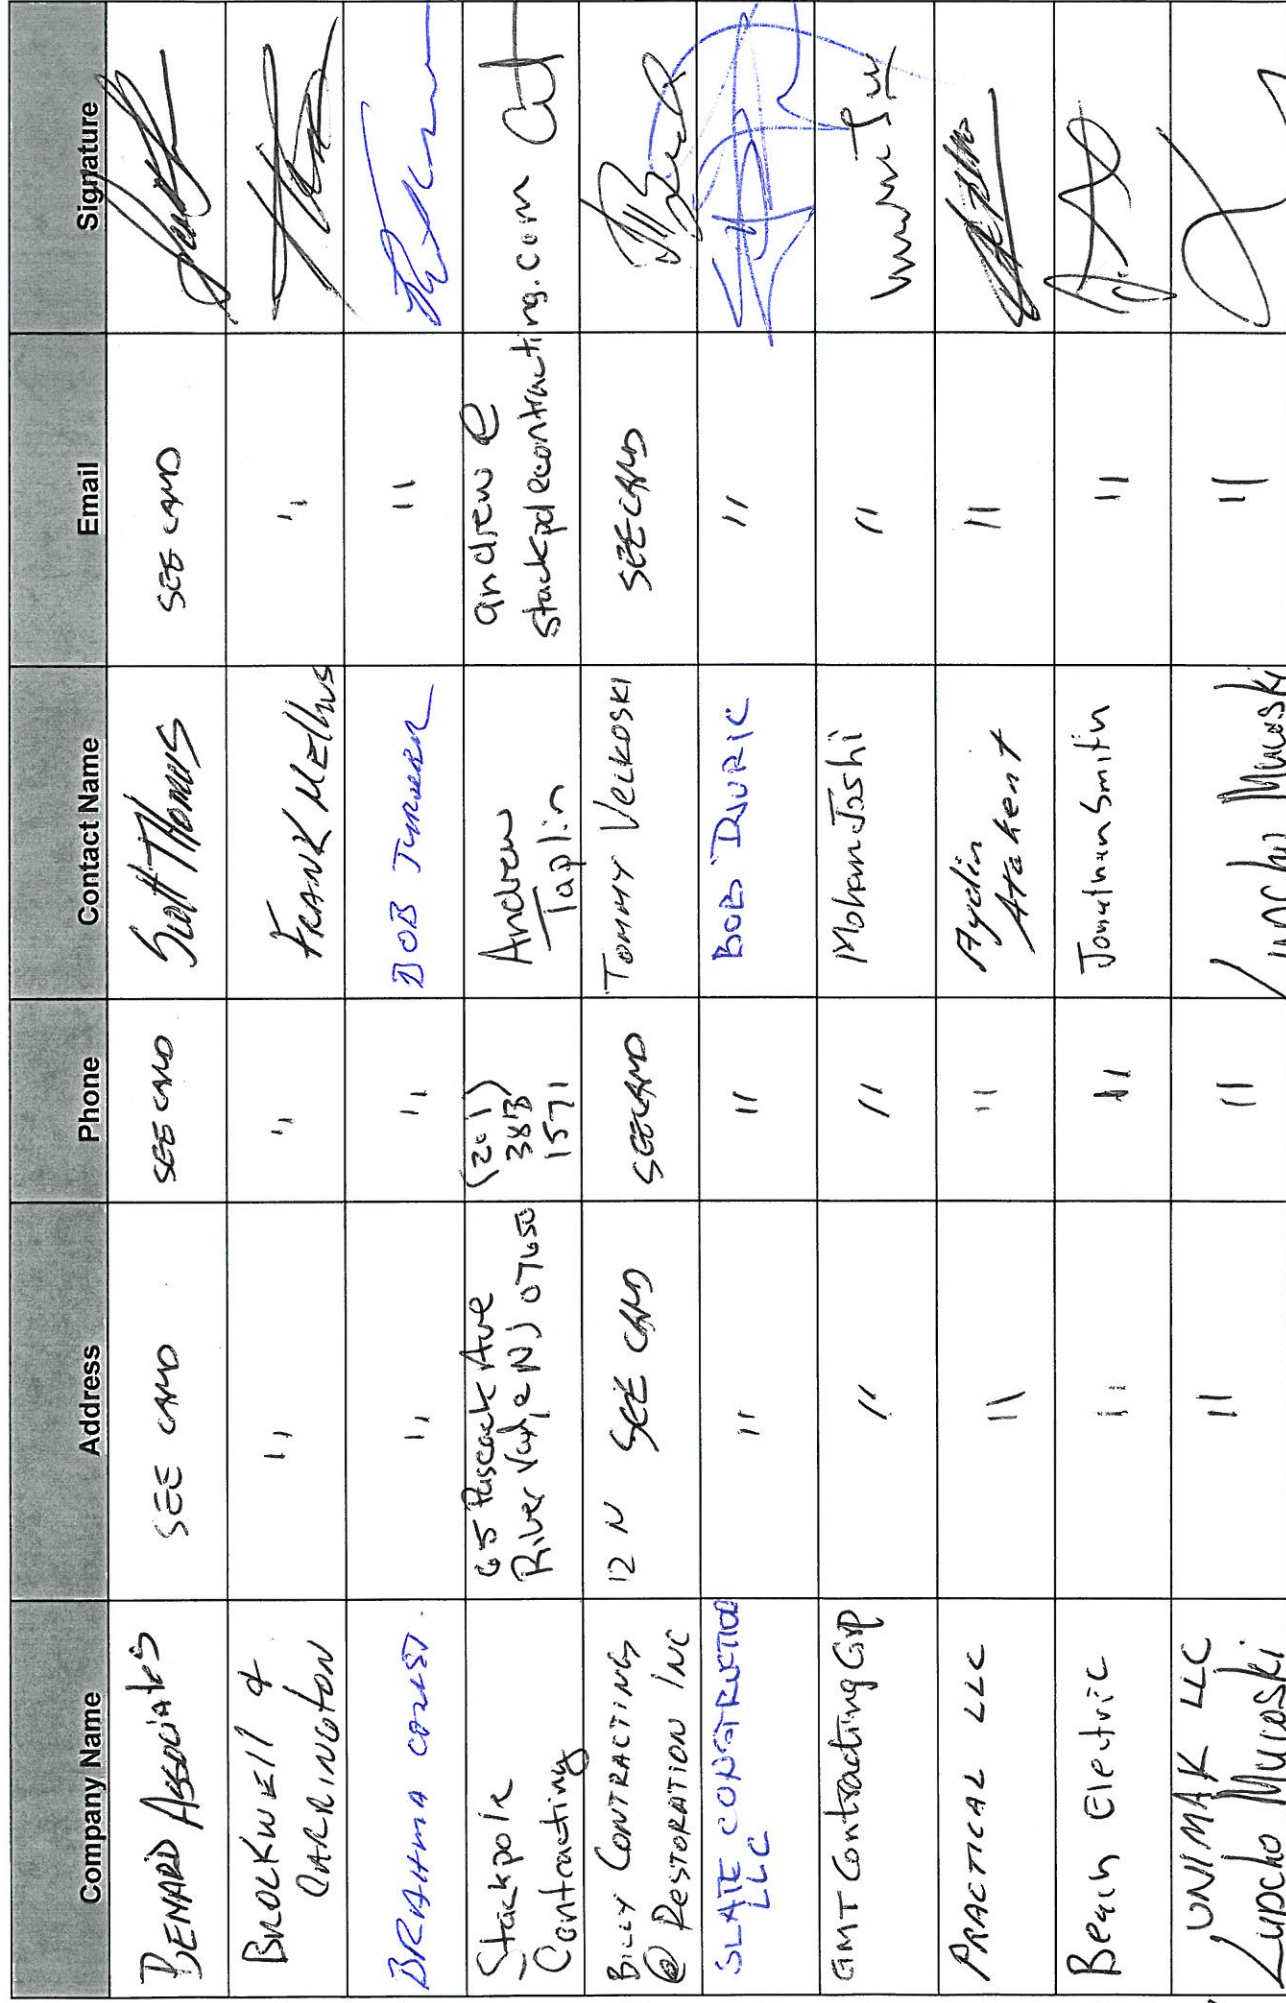 Company Name Address Phone Contact Name Email Signature
BENARD Associates SEE CARD SEE CARD Scott Thomas SEE CARD
BROCKWELL & CARRINGTON " " FRANK MELLUS "
BRAHMA CONST. " " BOB "
Stackpole Contracting 65 Pascack Ave River Vale NJ 07650 (201) 383 1571 Andrew Taplin andrew@stackpolecontracting.com
BILLY CONTRACTING @ RESTORATION INC 12 N SEE CARD SEE CARD TOMMY VELKOSKI SEE CARD
SLATE CONSTRUCTION LLC " " BOB DJURIC "
GMT Contracting Grp " " Mohan Joshi "
PRACTICAL LLC " " Aydin Atakent "
Beach Electric " " Jonathan Smith "
UNIMAK LLC Lupcho Mucoski " " Lupcho Mucoski "